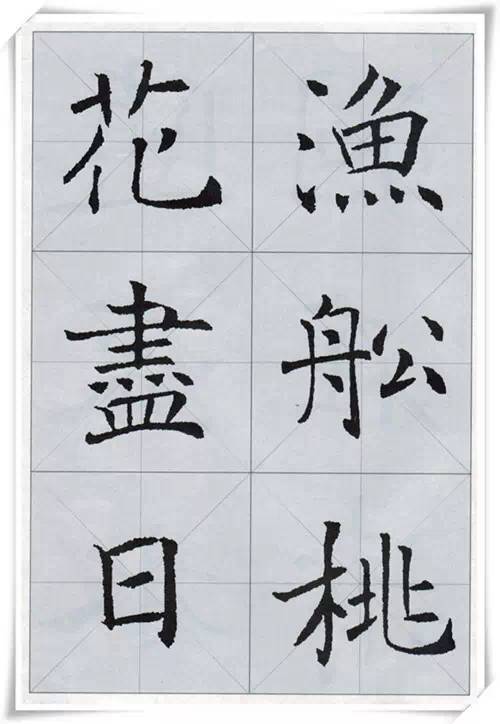 漁舩桃
花盡日